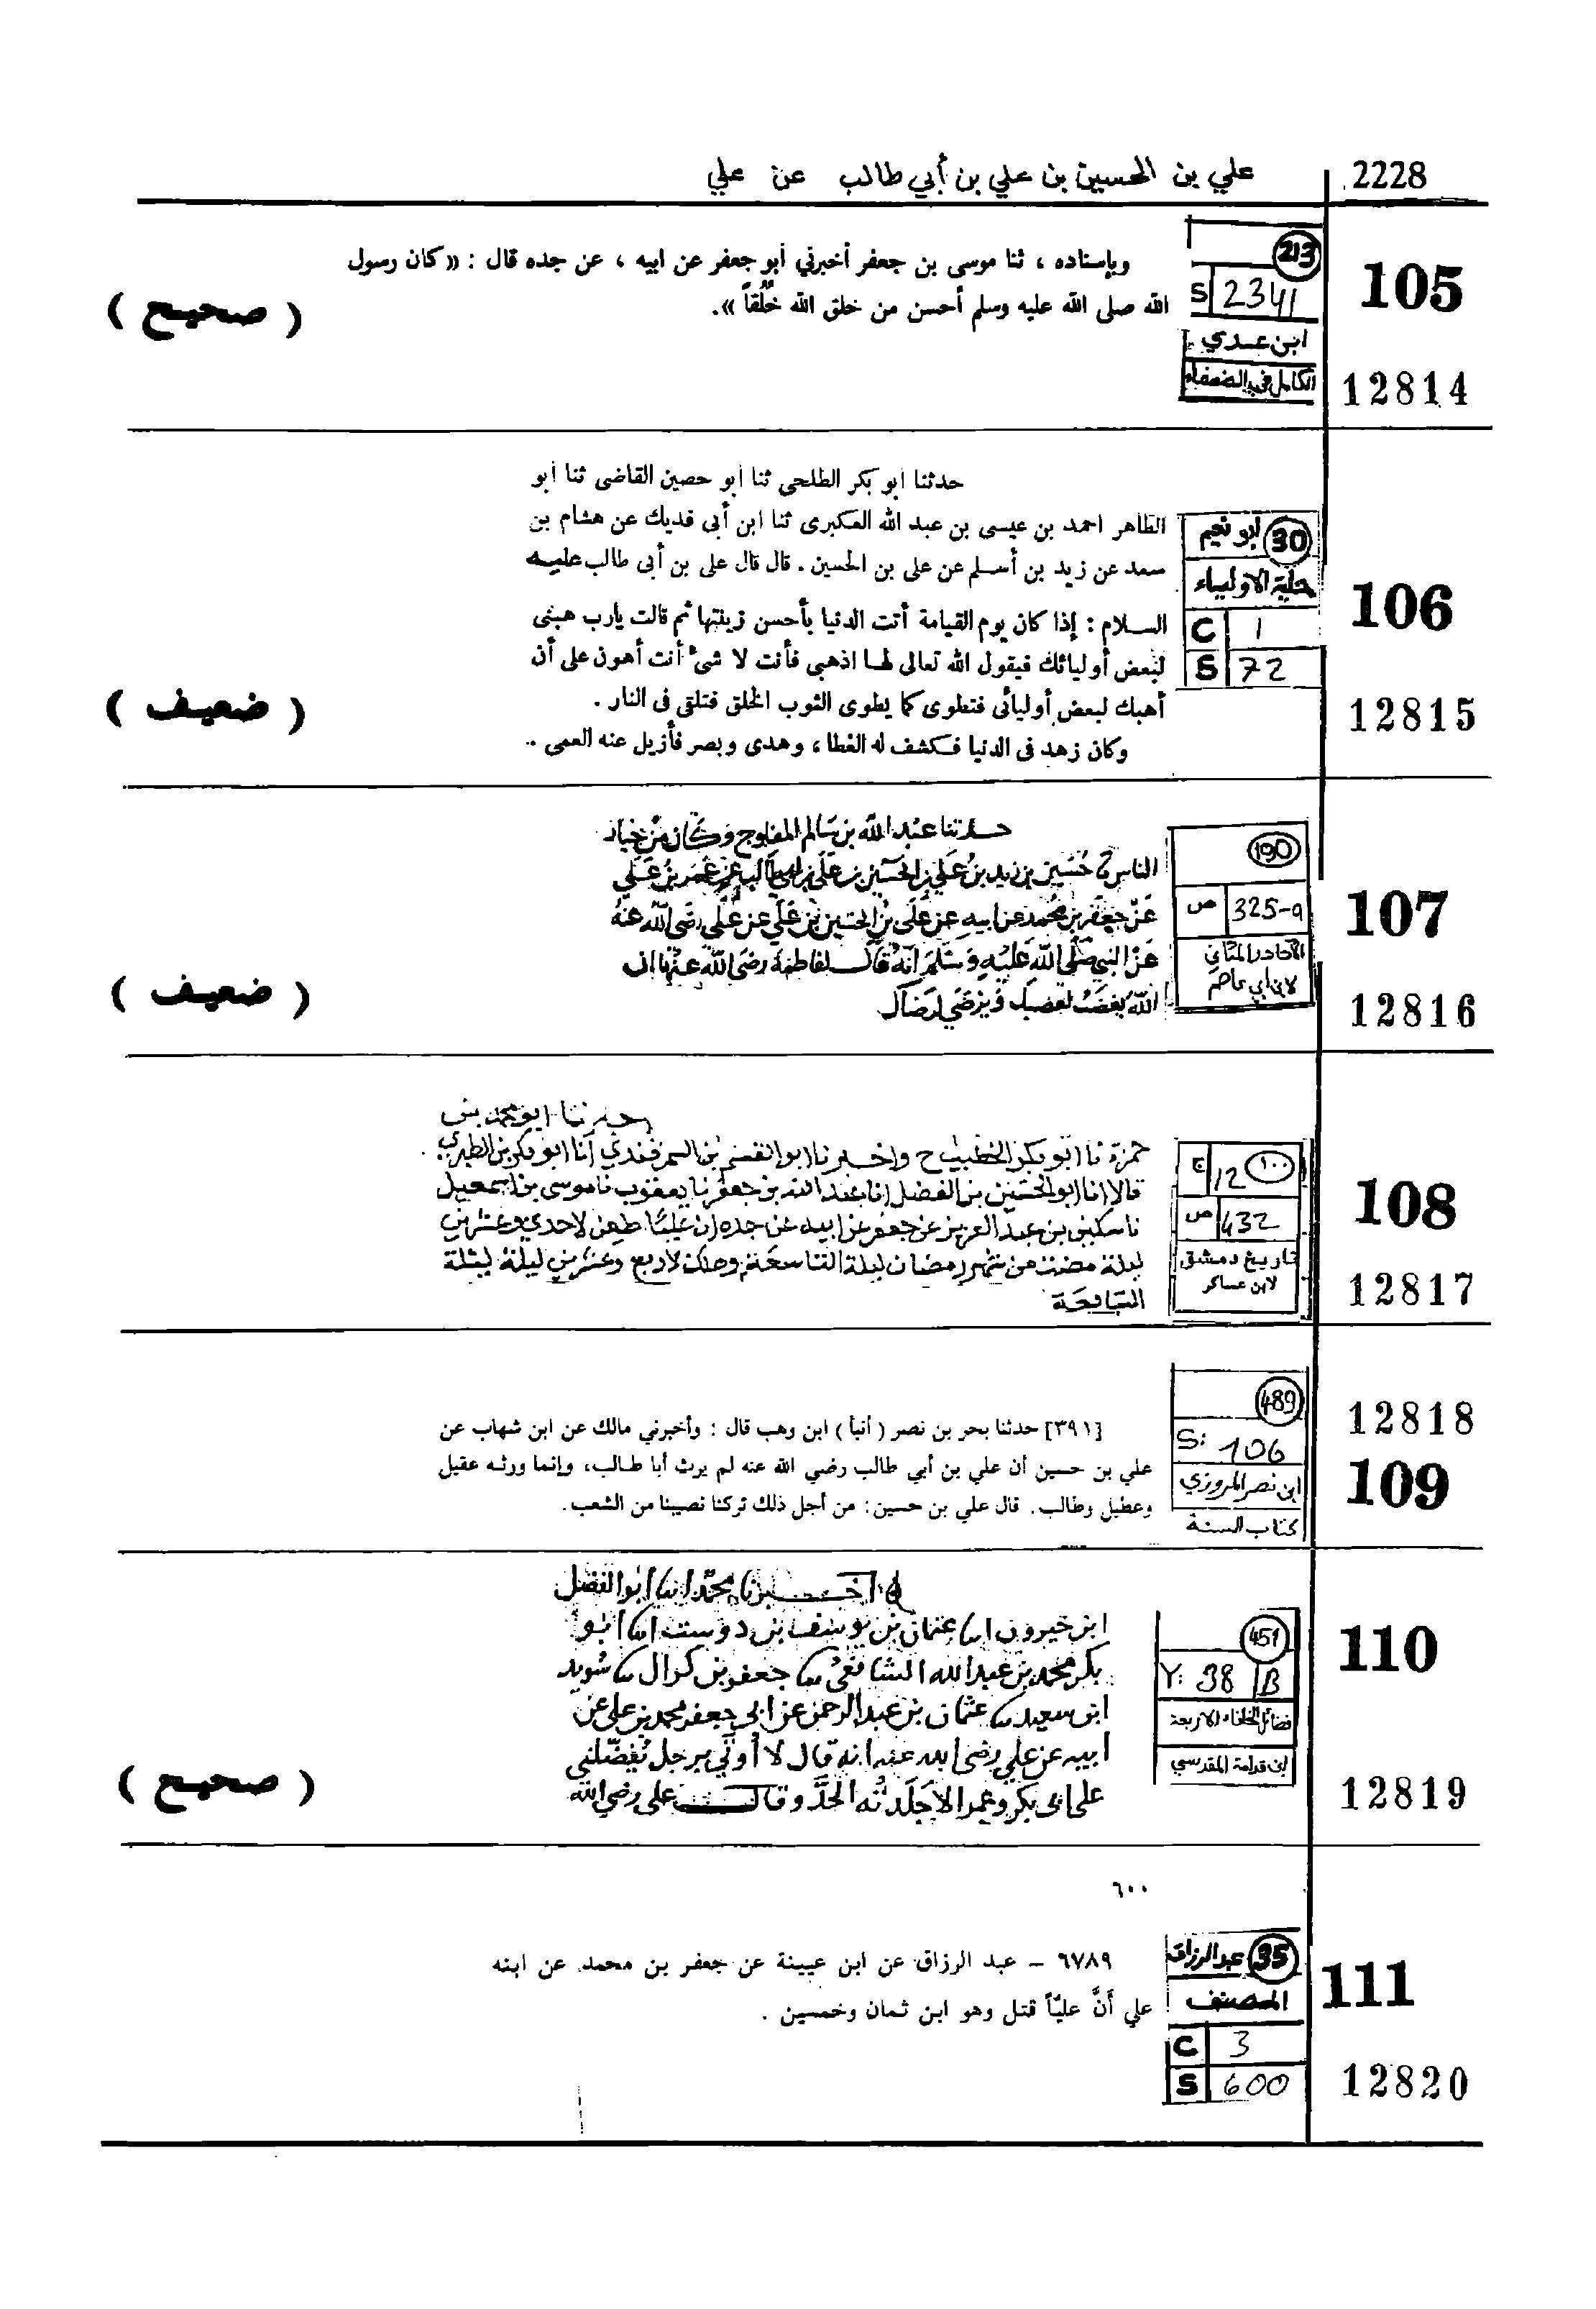 2228
علي بن الحسين بن علي بن أبي طالب عن علي
105
213
S 2341
ابن عدي
الكامل في الضعفاء
12814
وبإسناده ، ثنا موسى بن جعفر أخبرني أبو جعفر عن ابيه ، عن جده قال : «كان رسول
الله صلى الله عليه وسلم أحسن من خلق الله خُلُقاً ».
( صحيح )
106
30 أبو نعيم
حلية الاولياء
C 1
S 72
12815
حدثنا أبو بكر الطلحى ثنا أبو حصين القاضى ثنا أبو
الطاهر احمد بن عيسى بن عبد الله العكبرى ثنا ابن أبى فديك عن هشام بن
سعد عن زيد بن أسلم عن على بن الحسين . قال قال على بن أبى طالب عليه
السلام : إذا كان يوم القيامة أتت الدنيا بأحسن زينتها ثم قالت يارب هبنى
لبعض أوليائك فيقول الله تعالى لها اذهبى فأنت لا شىء أنت أهون على أن
أهبك لبعض أوليائى فتطوى كما يطوى الثوب الخلق فتلقى فى النار .
وكان زهد فى الدنيا فكشف له الغطا ، وهدى وبصر فأزيل عنه العمى ..
( ضعيف )
107
190
ص 325-a
الآحاد والمثاني
لابن ابي عاصم
12816
حدثنا عبد الله بن سالم المفلوج وكان من خيار
الناس حسين بن زيد بن علي بن الحسين بن علي بن ابي طالب عن عمر بن علي
عن جعفر بن محمد عن ابيه عن علي بن الحسين بن علي عن علي رضي الله عنه
عن النبي صلى الله عليه وسلم انه قال لفاطمة رضي الله عنها ان
الله يغضب لغضبك ويرضي لرضاك
( ضعيف )
108
١٠٠
ج 12
ص 432
تاريخ دمشق
لابن عساكر
12817
اخبرنا ابو محمد بن
حمزة نا ابو بكر الخطيب ح واخبرنا ابو القسم بن السمرقندي أنا ابو بكر بن الطبري
قالا انا ابو الحسين بن الفضل انا عبد الله بن جعفر نا يعقوب نا موسى بن اسمعيل
نا سكين بن عبد العزيز عن جعفر عن ابيه عن جده ان عليا طعن لاحدي وعشرين
ليلة مضت من شهر رمضان ليلة التاسعة وهلك لاربع وعشرين ليلة ليلة
السابعة
12818
109
489
S: 106
ابن نصر المروزي
كتاب السنة
[٣٩١] حدثنا بحر بن نصر ( أنبأ ) ابن وهب قال : وأخبرني مالك عن ابن شهاب عن
علي بن حسين أن علي بن أبي طالب رضي الله عنه لم يرث أبا طالب، وإنما ورثه عقيل
وعطيل وطالب. قال علي بن حسين: من أجل ذلك تركنا نصيبنا من الشعب.
110
451
Y: 38 B
فضائل الخلفاء الاربعة
ابن قدامة المقدسي
12819
اخبرنا محمد ابنا ابو الفضل
ابن خيرون ابنا عثمان بن يوسف بن دوست ابنا ابو
بكر محمد بن عبد الله الشافعي نا جعفر بن كزال نا سويد
ابن سعيد نا عثمان بن عبد الرحمن عن ابي جعفر محمد بن علي عن
ابيه عن علي رضي الله عنه انه قال لا أوتي برجل يُفضّلني
علي ابي بكر وعمر الا جَلَدتُه الحدَّ وقال علي رضي الله
( صحيح )
٦٠٠
111
35 عبد الرزاق
المصنف
C 3
S 600
12820
٦٧٨٩ – عبد الرزاق عن ابن عيينة عن جعفر بن محمد عن ابنه
علي أَنَّ عليّاً قتل وهو ابن ثمان وخمسين .